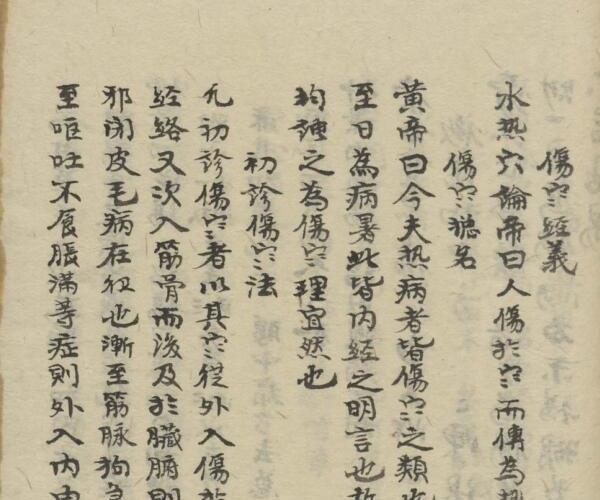 傷寒經義
水热穴論帝曰人傷於寒而傳為
傷寒揔名
黄帝曰今夫热病者皆傷寒之類也
至日為病暑此皆内經之明言也
之為傷寒理宜然也
初診傷寒法
凡初診傷寒者以其寒從外入傷於
経絡又次入筋骨而後及於臓腑則
邪闭皮毛病在也漸至筋脉狗急
至嘔吐不食脹滿等症則外入内由